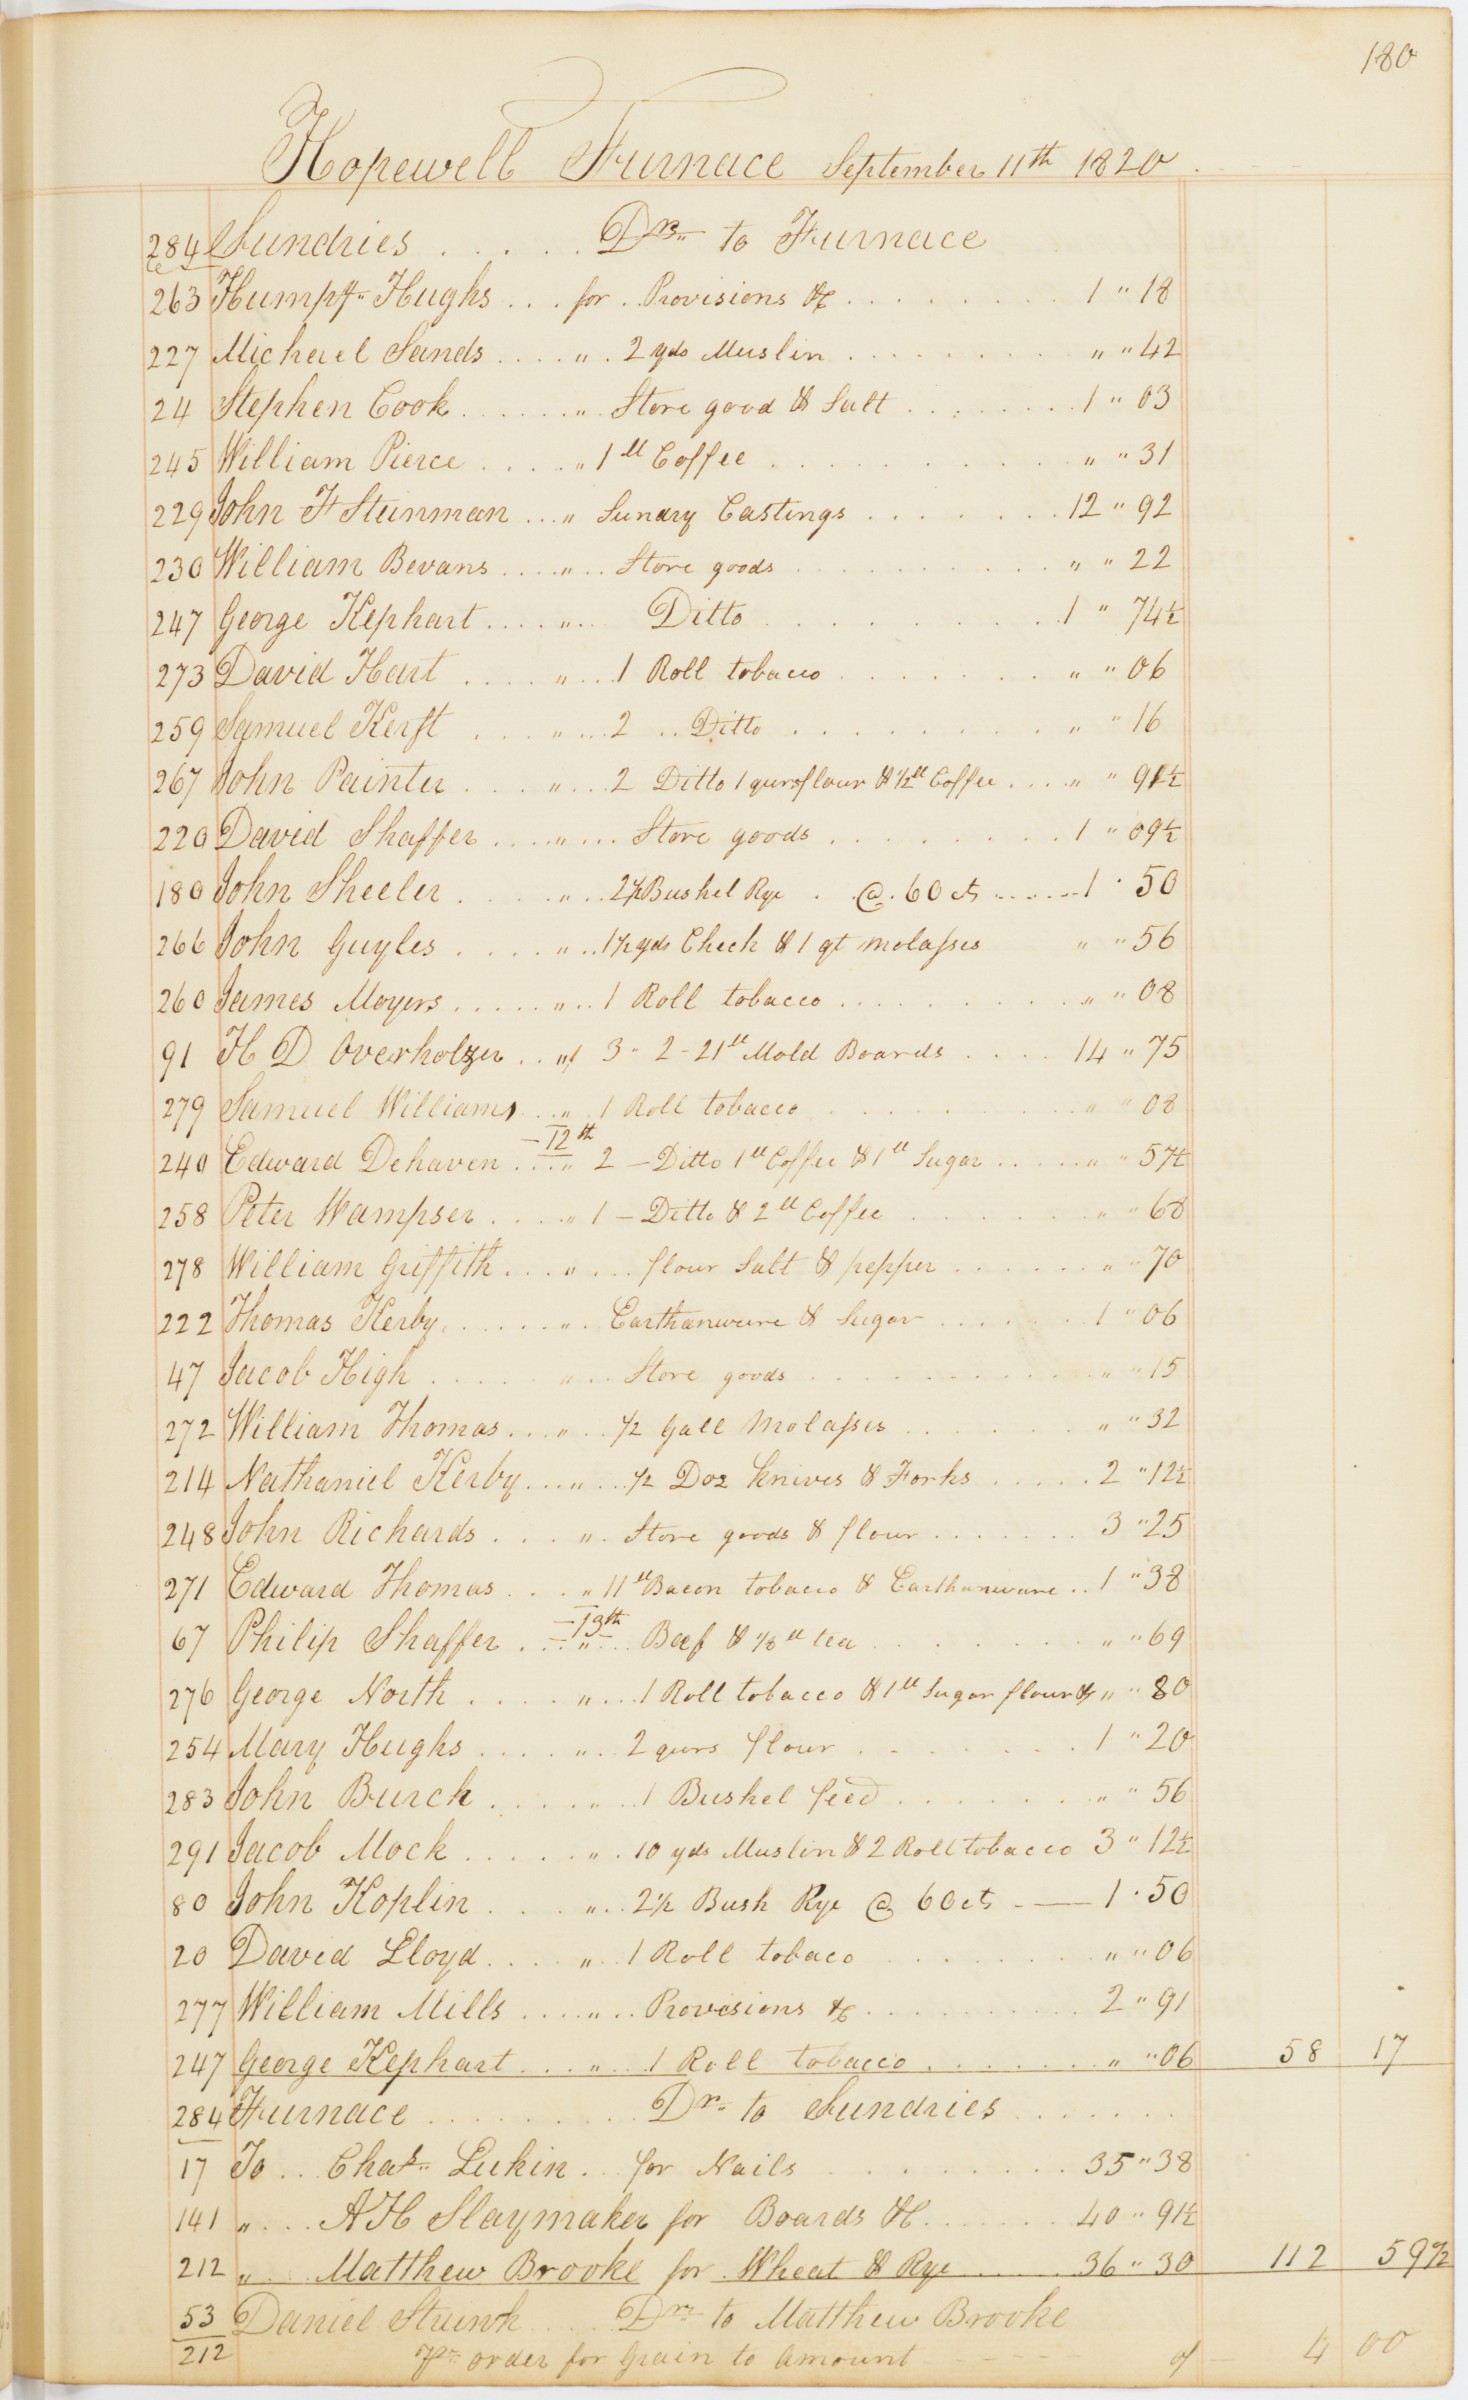 180
Hopewell Furnace September 11th 1820
284 Sundries . . . . . Drs to Furnace
263 Humphy Hughs . . . for . Provisions &c . . . . . . . . . 1 " 18
227 Michael Sands . . . . " . 2 yds Muslin . . . . . . . . . " " 42
24 Stephen Cook . . . . . . " . Store good & Salt . . . . . . . . 1 " 03
245 William Pierce . . . . . " 1 lb Coffee . . . . . . . . . . . " " 31
229 John F Steinman . . . " Sundry Castings . . . . . . . 12 " 92
230 William Bevans . . . . " . . Store goods . . . . . . . . . . . " " 22
247 George Kephart . . . . " . . . Ditto . . . . . . . . . . . 1 " 74½
273 David Hart . . . . " . . . 1 Roll tobacco . . . . . . . . " " 06
259 Samuel Kerst . . . . " . . . 2 . . Ditto . . . . . . . . . . " " 16
267 John Painter . . . . " . . . 2 Ditto 1 qursflour & ½ lb Coffee . . . . " " 91½
220 David Shaffer . . . . " . . . Store goods . . . . . . . . . 1 " 09½
180 John Sheeler . . . . . " . . 2½ Bushel Rye . . @ . 60 cts . . . . . . 1 . 50
266 John Guyles . . . . . " . . 1½ yds Check & 1 qt molasses " " 56
260 James Moyers . . . . . " . . 1 Roll tobacco . . . . . . . . . . " " 08
91 H D Overholzer . . " 1 3 - 2 - 21 lb Mold Boards . . . . 14 " 75
279 Samuel Williams . . . " . 1 Roll tobacco . . . . . . . . . . " " 08
— 12th —
240 Edward Dehaven . . . . " 2 — Ditto 1 lb Coffee & 1 lb Sugar . . . . . " " 57½
258 Peter Wampser . . . . " 1 — Ditto & 2 lb Coffee . . . . . . " " 68
278 William Griffith . . . . " . . . flour Salt & pepper . . . . . . " " 70
222 Thomas Kerby . . . . . . " . Earthanware & Sugar . . . . . . . 1 " 06
47 Jacob High . . . . . " . . Store goods . . . . . . . . . . . " " 15
272 William Thomas . . . " . . ½ Gall Molasses . . . . . . . " " 32
214 Nathaniel Kerby . . . " . . . ½ Doz Knives & Forks . . . . . 2 " 12½
248 John Richards . . . . " . Store goods & flour . . . . . . . 3 " 25
271 Edward Thomas . . . . " 11 lb Bacon tobacco & Earthanware . . 1 " 38
— 13th —
67 Philip Shaffer . . . . " . . . Beef & ⅛ lb tea . . . . . . . . " " 69
276 George North . . . . . " . . . 1 Roll tobacco & 1 lb Sugar flour &c " " 80
254 Mary Hughs . . . . . " . . 2 qurs flour . . . . . . . . 1 " 20
283 John Burck . . . . . " . . 1 Bushel feed . . . . . . . " " 56
291 Jacob Mock . . . . . . " . 10 yds Muslin & 2 Roll tobacco 3 " 12½
80 John Koplin . . . . " . . 2½ Bush Rye @ 60 cts — 1 . 50
20 David Lloyd . . . . " . . 1 Roll tobaco . . . . . . . . " " 06
277 William Mills . . . . . " . . Provisions &c . . . . . . . . . . 2 " 91
247 George Kephart . . . . " . . . 1 Roll tobacco . . . . . . . " " 06 58 17
284 Furnace . . . . . . . . . Dr to Sundries . . . . . . .
17 To . . Chas Lukin . . for Nails . . . . . . . . . 35 " 38
141 " . . . A H Slaymaker for Boards &c . . . . . . 40 " 91½
212 " . . . Matthew Brooke for Wheat & Rye . . . . . 36 " 30 112 59½
53 Daniel Strunk . . . . Dr to Matthew Brooke
212 Pr order for Grain to amount . . . . . . of — 4 00